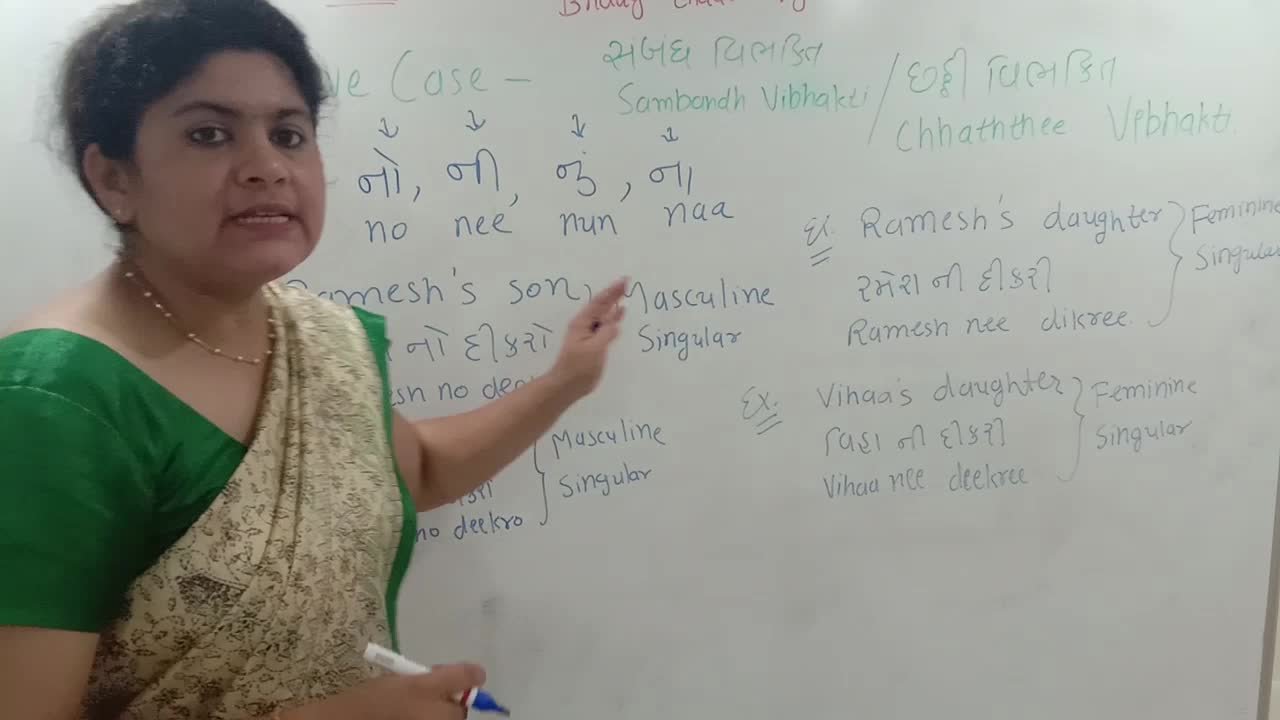 ve Case -
સંબંધ વિભકિત
Sambandh Vibhakti /
છઠ્ઠી વિભકિત
Chhaththee Vibhakti
નો, ની, નું, ના
no nee nun naa
Ramesh's son, Masculine
Singular
નો દીકરો
esh no dee
Masculine
Singular
no deekro
Ex. Ramesh's daughter } Feminine
Singular
રમેશ ની દીકરી
Ramesh nee dikree.
Ex. Vihaa's daughter } Feminine
Singular
વિહા ની દીકરી
Vihaa nee deekree